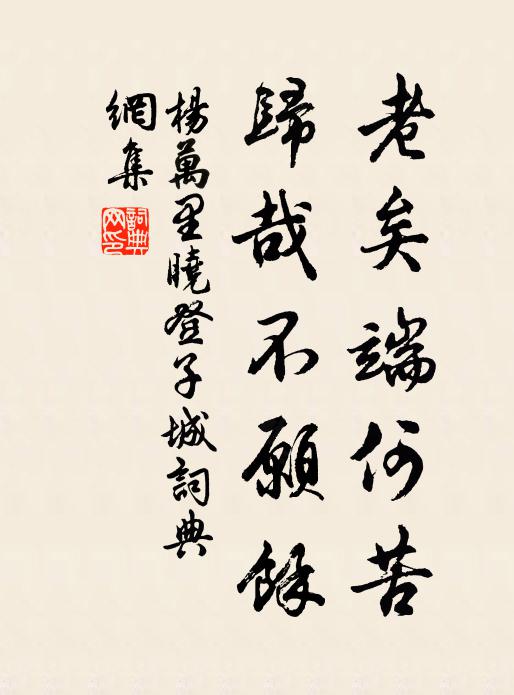 老矣端何苦
歸哉不願餘
楊萬里曉登子城詞典
網集
詞典
网印